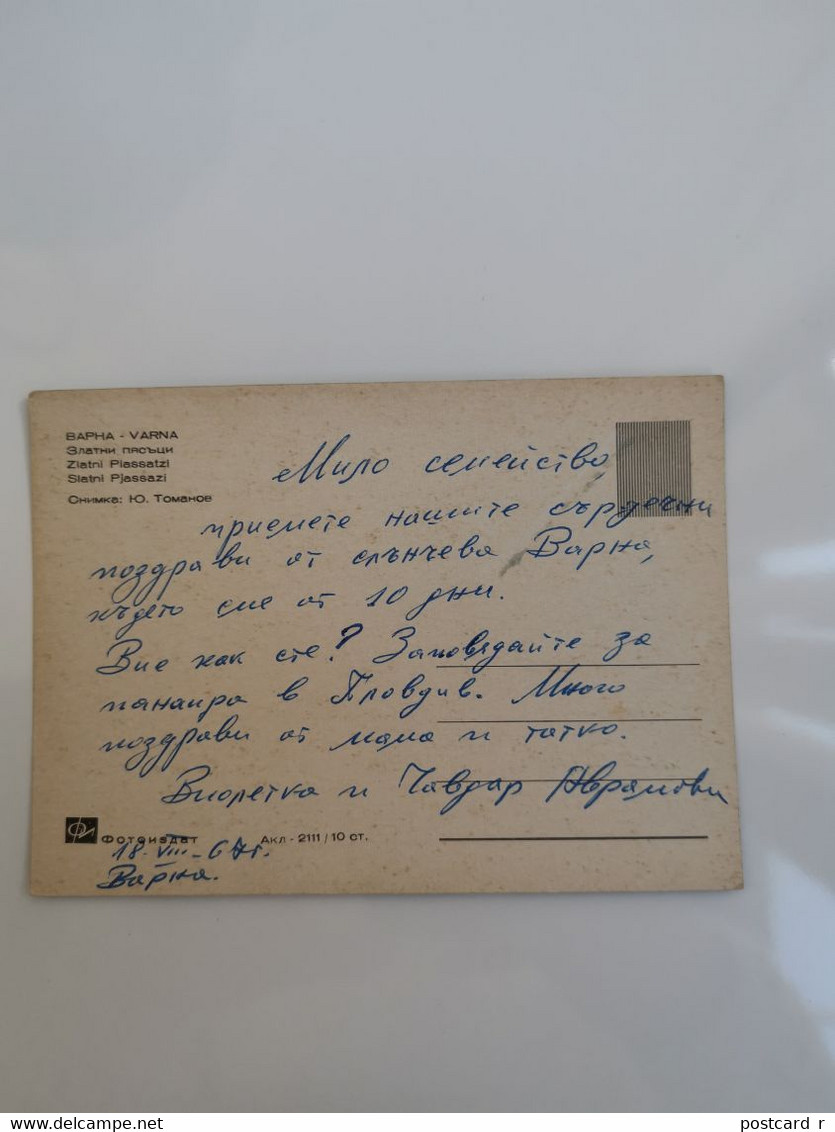 ВАРНА - VARNA
Златни пясъци
Zlatni Piassatzi
Slatni Pjassazi
Снимка: Ю. Томанов
Мило семейство,
приемете нашите сърдечни
поздрави от слънчева Варна,
където сме от 10 дни.
Вие как сте? Заповядайте за
панаира в Пловдив. Много
поздрави от мама и татко.
Виолетка и Чавдар Аврамови
Фотоиздат Акл - 2111 / 10 ст.
18. VIII - 67г.
Варна.
postcard_r